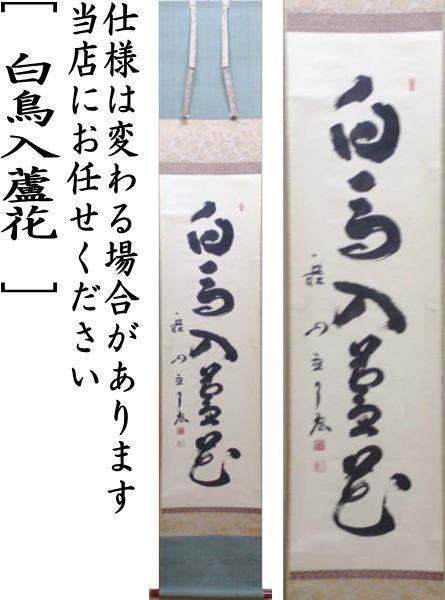 仕様は変わる場合があります
当店にお任せください
[ 白鳥入蘆花 ]
白馬入蘆花
白馬入蘆花